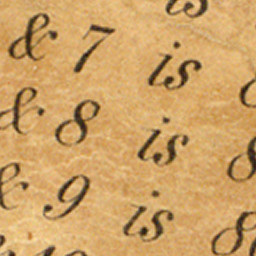 is
& 7 is
& 8 is 8
& 9 is 8